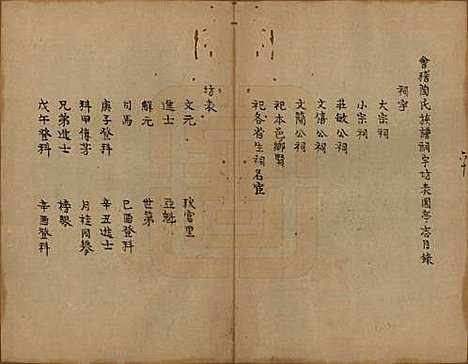 會稽陶氏族譜祠宇坊表園亭志目錄
祠宇
大宗祠
小宗祠
莊敏公祠
文僖公祠
文簡公祠
祀本邑鄉賢
祀各省生祠名宦
坊表
文元
狀元里
進士
亞魁
解元
世第
司馬
己酉登科
庚子登科
辛丑進士
科甲傳芳
月桂同攀
兄弟進士
榜眼
戊午登科
辛酉登科